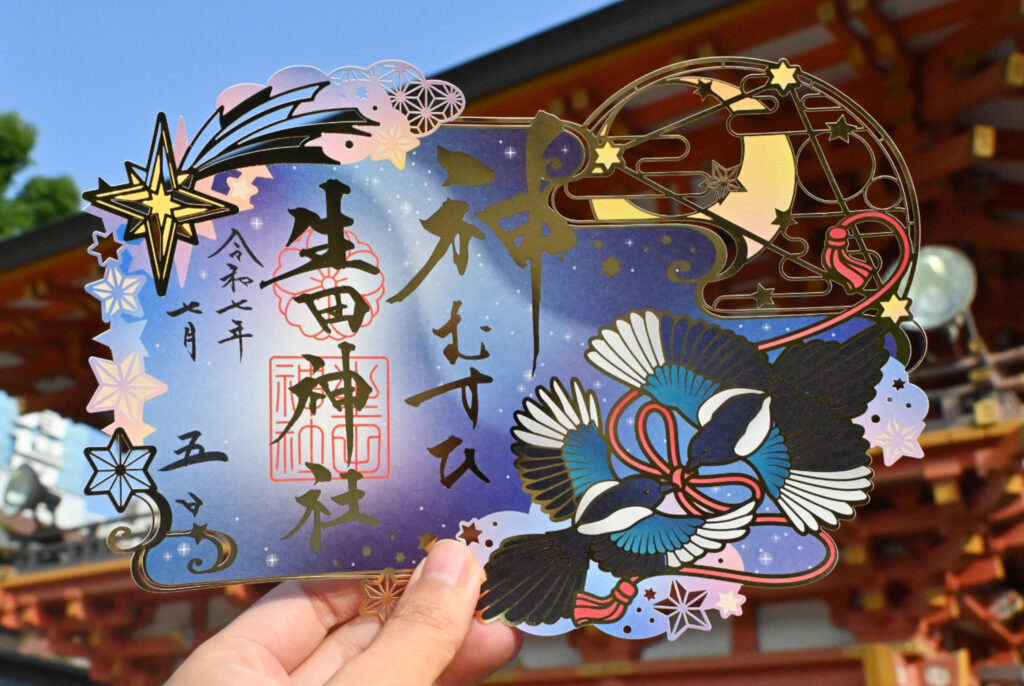 神むすひ
生田神社
令和七年
七月
五日